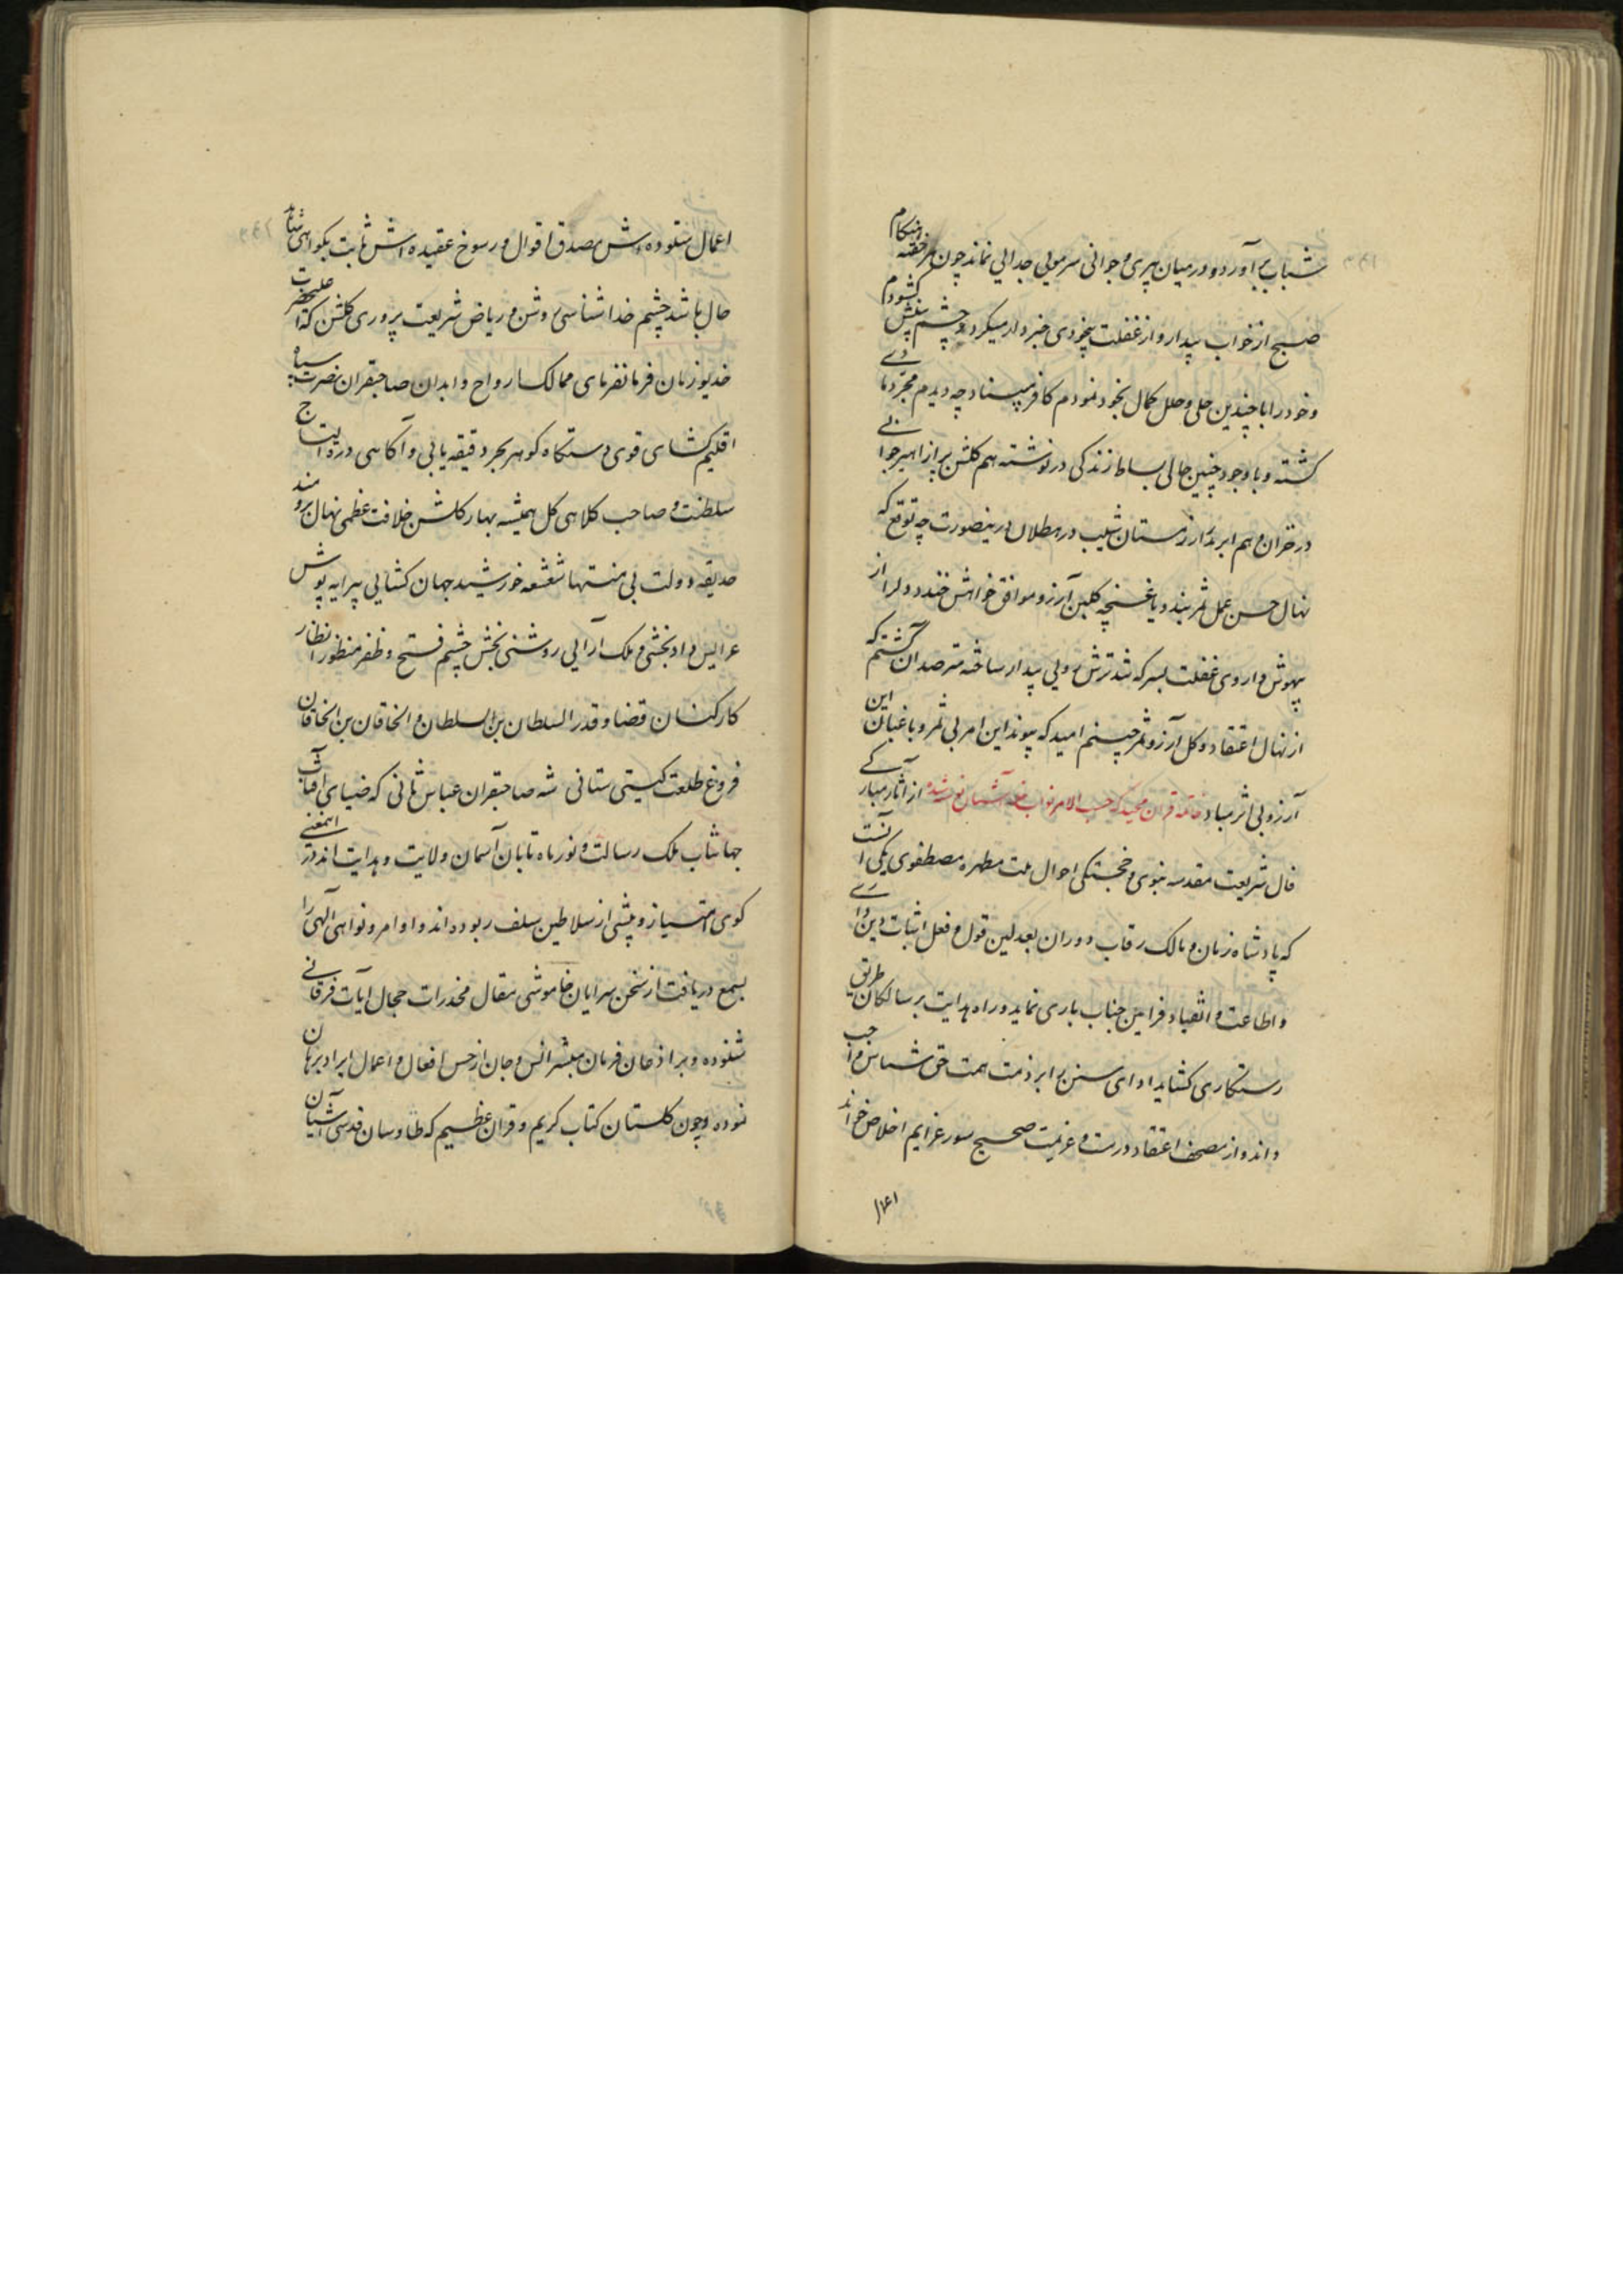 شباب بر آورد و در میان پیری و جوانی سر مویی جدایی نماند چون هر خفته هنگام
صبح از خواب بیدار و از غفلت بیخردی خبردار میگردد چشم بینش گشودم
و خود را با چندین حلی و حلل کمال بخود نمودم کافر مبیناد چه دیدم مجرد ما دی
گشته و با وجود چنین حالی بساط زندگی در نوشته هم گلشن پر از امیر جوانی
در خزان و هم ابر بهار زمستان شیب در هطلان درینصورت چه توقع که
نهال حسن عمل ثمر بندد یا غنچه گلبن آرزو موافق خواهش خندد و لرا از
بیهوش داروی غفلت بسرکه تند ترش رویی بیدار ساخته مترصد آن گشتم که
از نهال اعتقاد و گل آرزو ثمر چینم امید که پیوند این امر بی ثمر و باغبان این
آرزو بی اثر مباد خاتمه قرآن مجید که حسب الامر نواب آشیان نوشته شده از آثار مبارکی
فال شریعت مقدسه نبوی و خجستگی احوال ملت مطهره مصطفوی یکی آنست
که پادشاه زمان و مالک رقاب دوران بعدلین قول و فعل اثبات دین داری
و اطاعت و انقیاد فرامین جناب باری نماید و راه هدایت بر سالکان طریق
رستگاری گشاید ادای سنن برابر ذمت همت حق شناس واجب
داند و از مصحف اعتقاد درست و عزیمت صحیح سور عزایم اخلاص خواند
۱۶۱
اعمال ستوده اش مصدق اقوال و رسوخ عقیده اش ثابت بگواهی شاهد
حال باشد چشم خدا شناسی روشن و ریاض شریعت پروری گلشن که اعلیحضرت
خدیو زمان فرمانفرمای ممالک ارواح و ابدان صاحبقران نصرت سپاه
اقلیم گشای قوی دستگاه گوهر بحر دقیقه یابی و آگاهی درة التاج
سلطنت و صاحب کلاهی گل همیشه بهار گلشن خلافت عظمی نهال برومند
حدیقه دولت بی منتها شعشعه خورشید جهان گشایی پیرایه پوش
عرایس داد بخشی و ملک آرایی روشنی بخش چشم فتح و ظفر منظور انظار
کارکنان قضا و قدر السلطان بن السلطان و الخاقان بن الخاقان
فروغ طلعت گیتی ستانی شه صاحبقران عباس ثانی که ضیای آفتاب
جهانتاب ملک رسالت و نور ماه تابان آسمان ولایت و هدایت اند در اینمعنی
گوی امتیاز و پیشی از سلاطین سلف ربوده اند و اوامر و نواهی الهی را
بسمع دریافت از سخن سرایان خاموشی مقال مخدرات حجال آیات فرقانی
شنوده و بر اذعان فرمان مبشر انس و جان از حسن افعال و اعمال ایراد برهان
نموده و چون گلستان کتاب کریم و قرآن عظیم که طاوسان قدسی آشیان